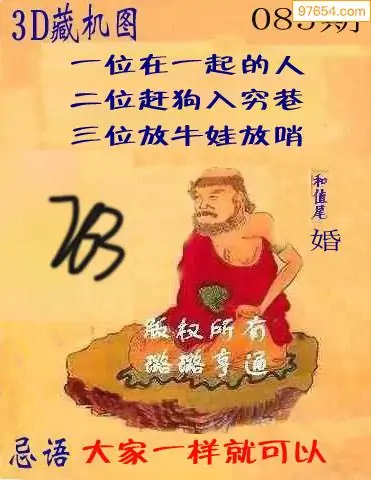 97654.com
3D藏机图 085期
一位在一起的人
二位赶狗入穷巷
三位放牛娃放哨
和值尾
婚
版权所有
璐璐亨通
忌语 大家一样就可以